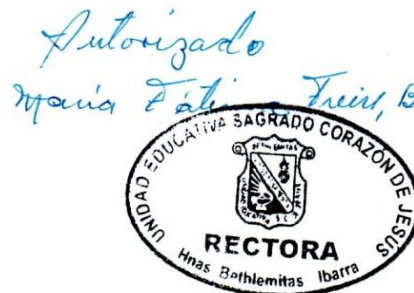 Autorizado
María Freire, B
UNIDAD EDUCATIVA SAGRADO CORAZÓN DE JESUS
RECTORA
Hnas Bethlemitas Ibarra